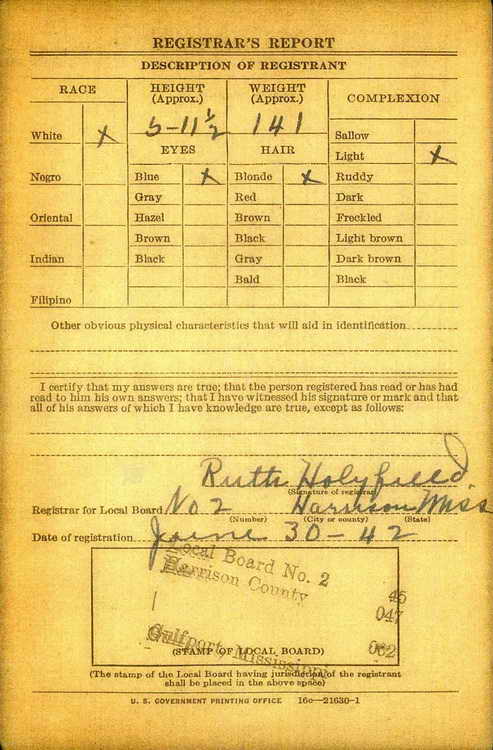 REGISTRAR'S REPORT
DESCRIPTION OF REGISTRANT
RACE
HEIGHT (Approx.)
WEIGHT (Approx.)
COMPLEXION
5-11½
141
White X
EYES
HAIR
Sallow
Light X
Negro
Blue X
Blonde X
Ruddy
Gray
Red
Dark
Oriental
Hazel
Brown
Freckled
Brown
Black
Light brown
Indian
Black
Gray
Dark brown
Bald
Black
Filipino
Other obvious physical characteristics that will aid in identification
I certify that my answers are true; that the person registered has read or has had
read to him his own answers; that I have witnessed his signature or mark and that
all of his answers of which I have knowledge are true, except as follows:
Ruth Holyfield
(Signature of registrar)
Registrar for Local Board No 2 Harrison Miss
(Number) (City or county) (State)
Date of registration June 30-42
Local Board No. 2
Harrison County
45
047
002
Gulfport, Mississippi
(STAMP OF LOCAL BOARD)
(The stamp of the Local Board having jurisdiction of the registrant
shall be placed in the above space)
U. S. GOVERNMENT PRINTING OFFICE 16c—21630-1